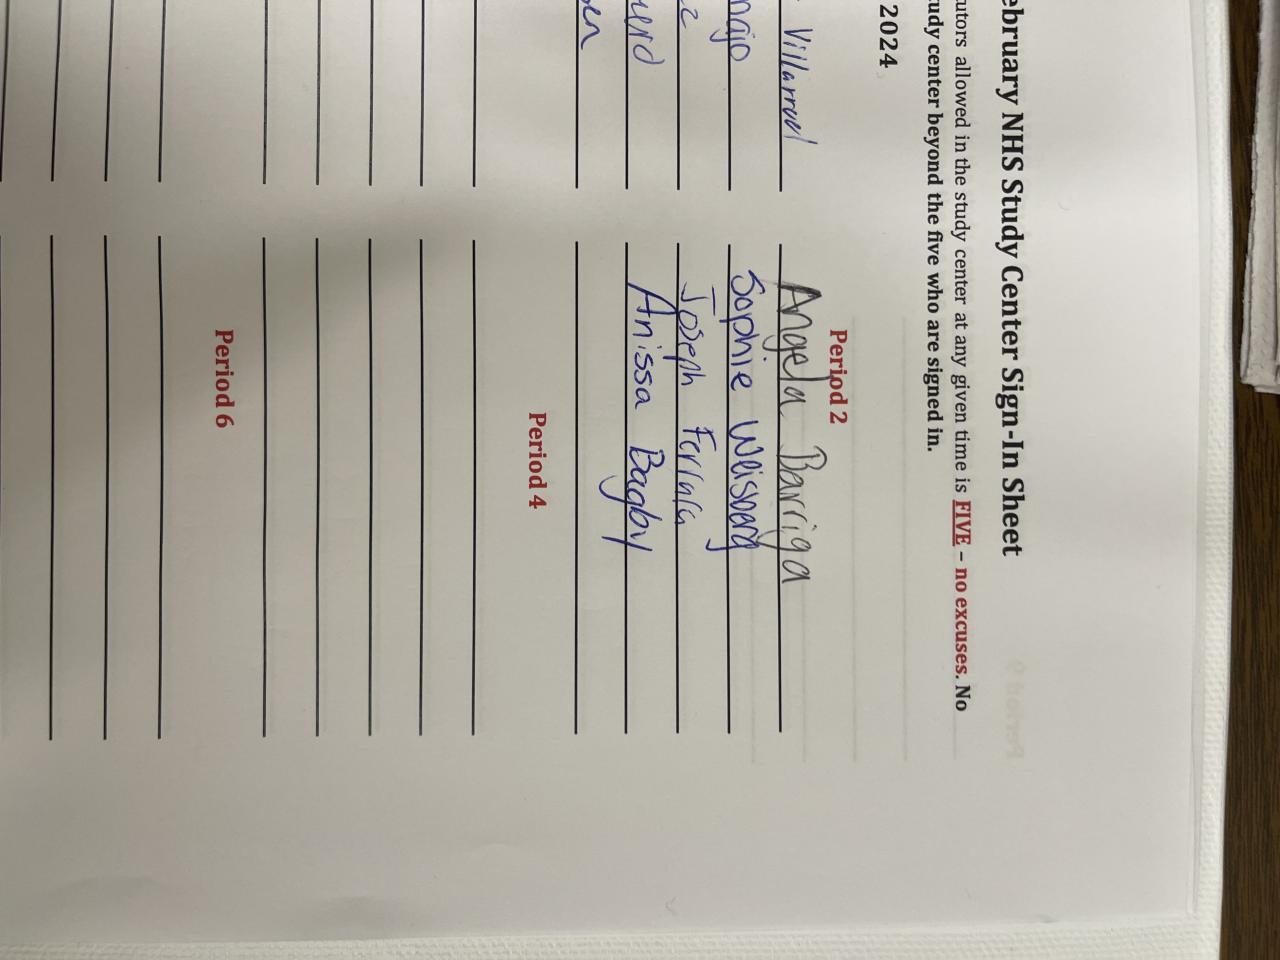 ebruary NHS Study Center Sign-In Sheet
utors allowed in the study center at any given time is FIVE – no excuses. No
tudy center beyond the five who are signed in.
2024
Period 2
Villarreal Angela Barriga
ngo Sophie Weisberg
z Joseph Ferrara
uerd Anissa Bagby
sen
Period 4
Period 6